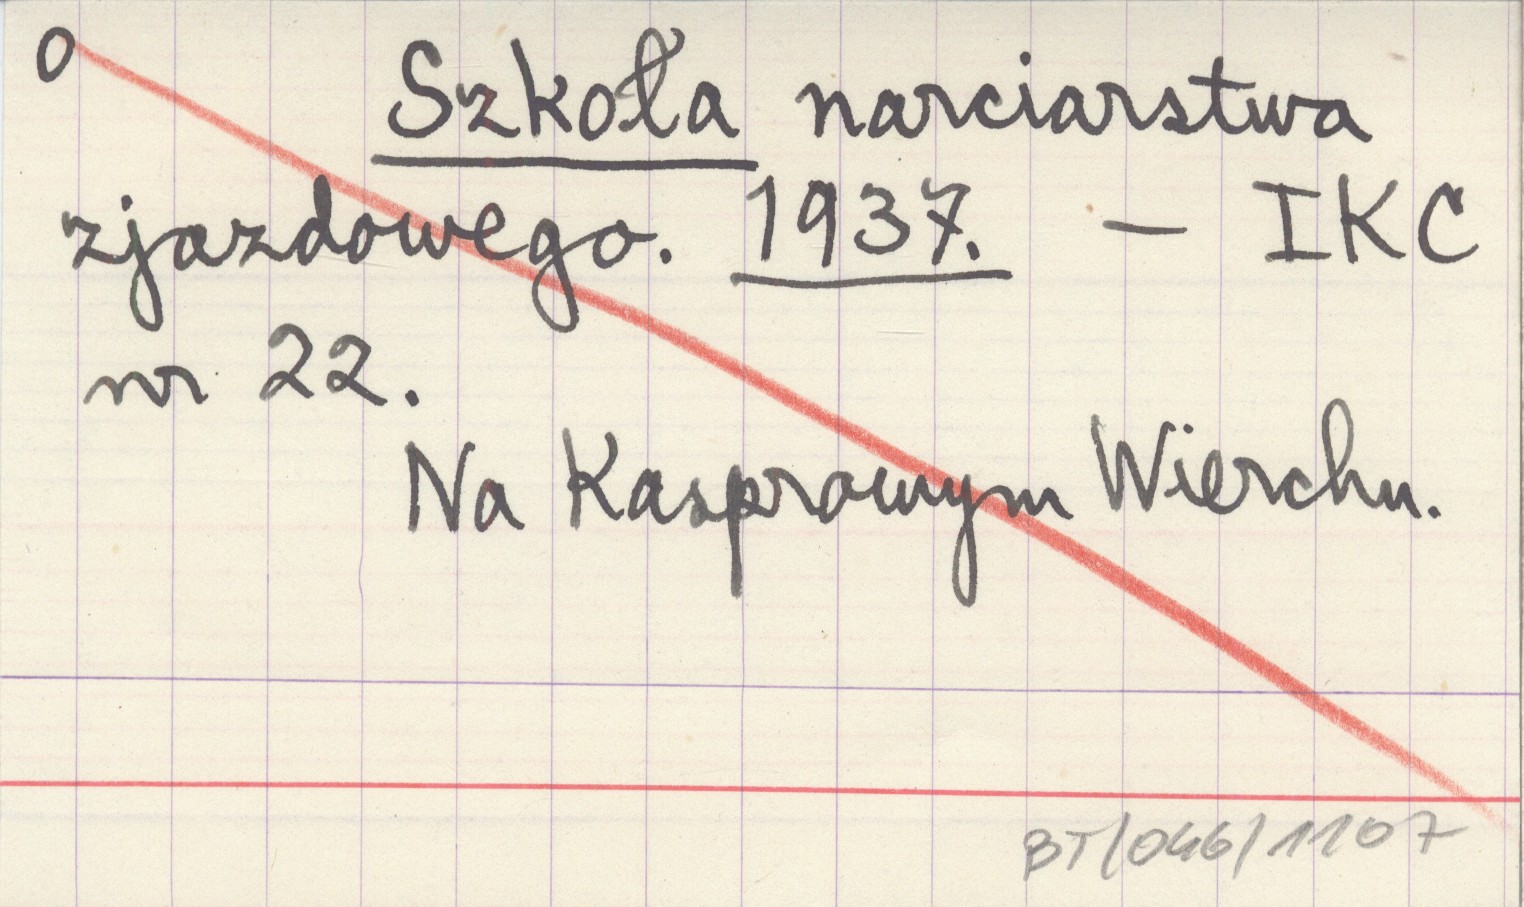 O
Szkoła narciarstwa
zjazdowego. 1937. — IKC
nr 22.
Na Kasprowym Wierchu.
BT/046/1107